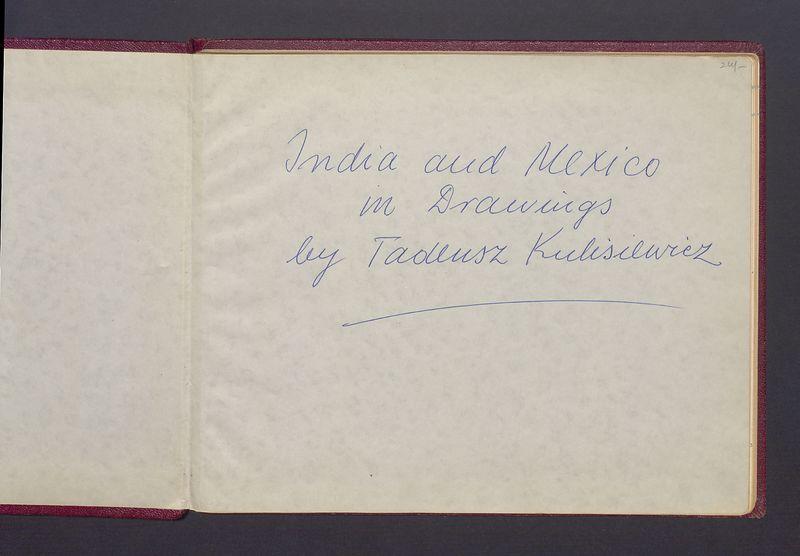 India and Mexico
in Drawings
by Tadeusz Kulisiewicz